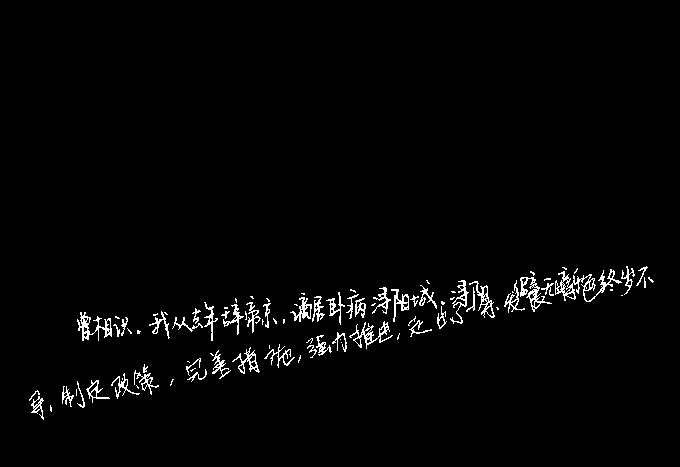 曾相识。我从去年辞帝京，谪居卧病浔阳城。浔阳 终岁不
导，制定政策，完善措施，强力推进，